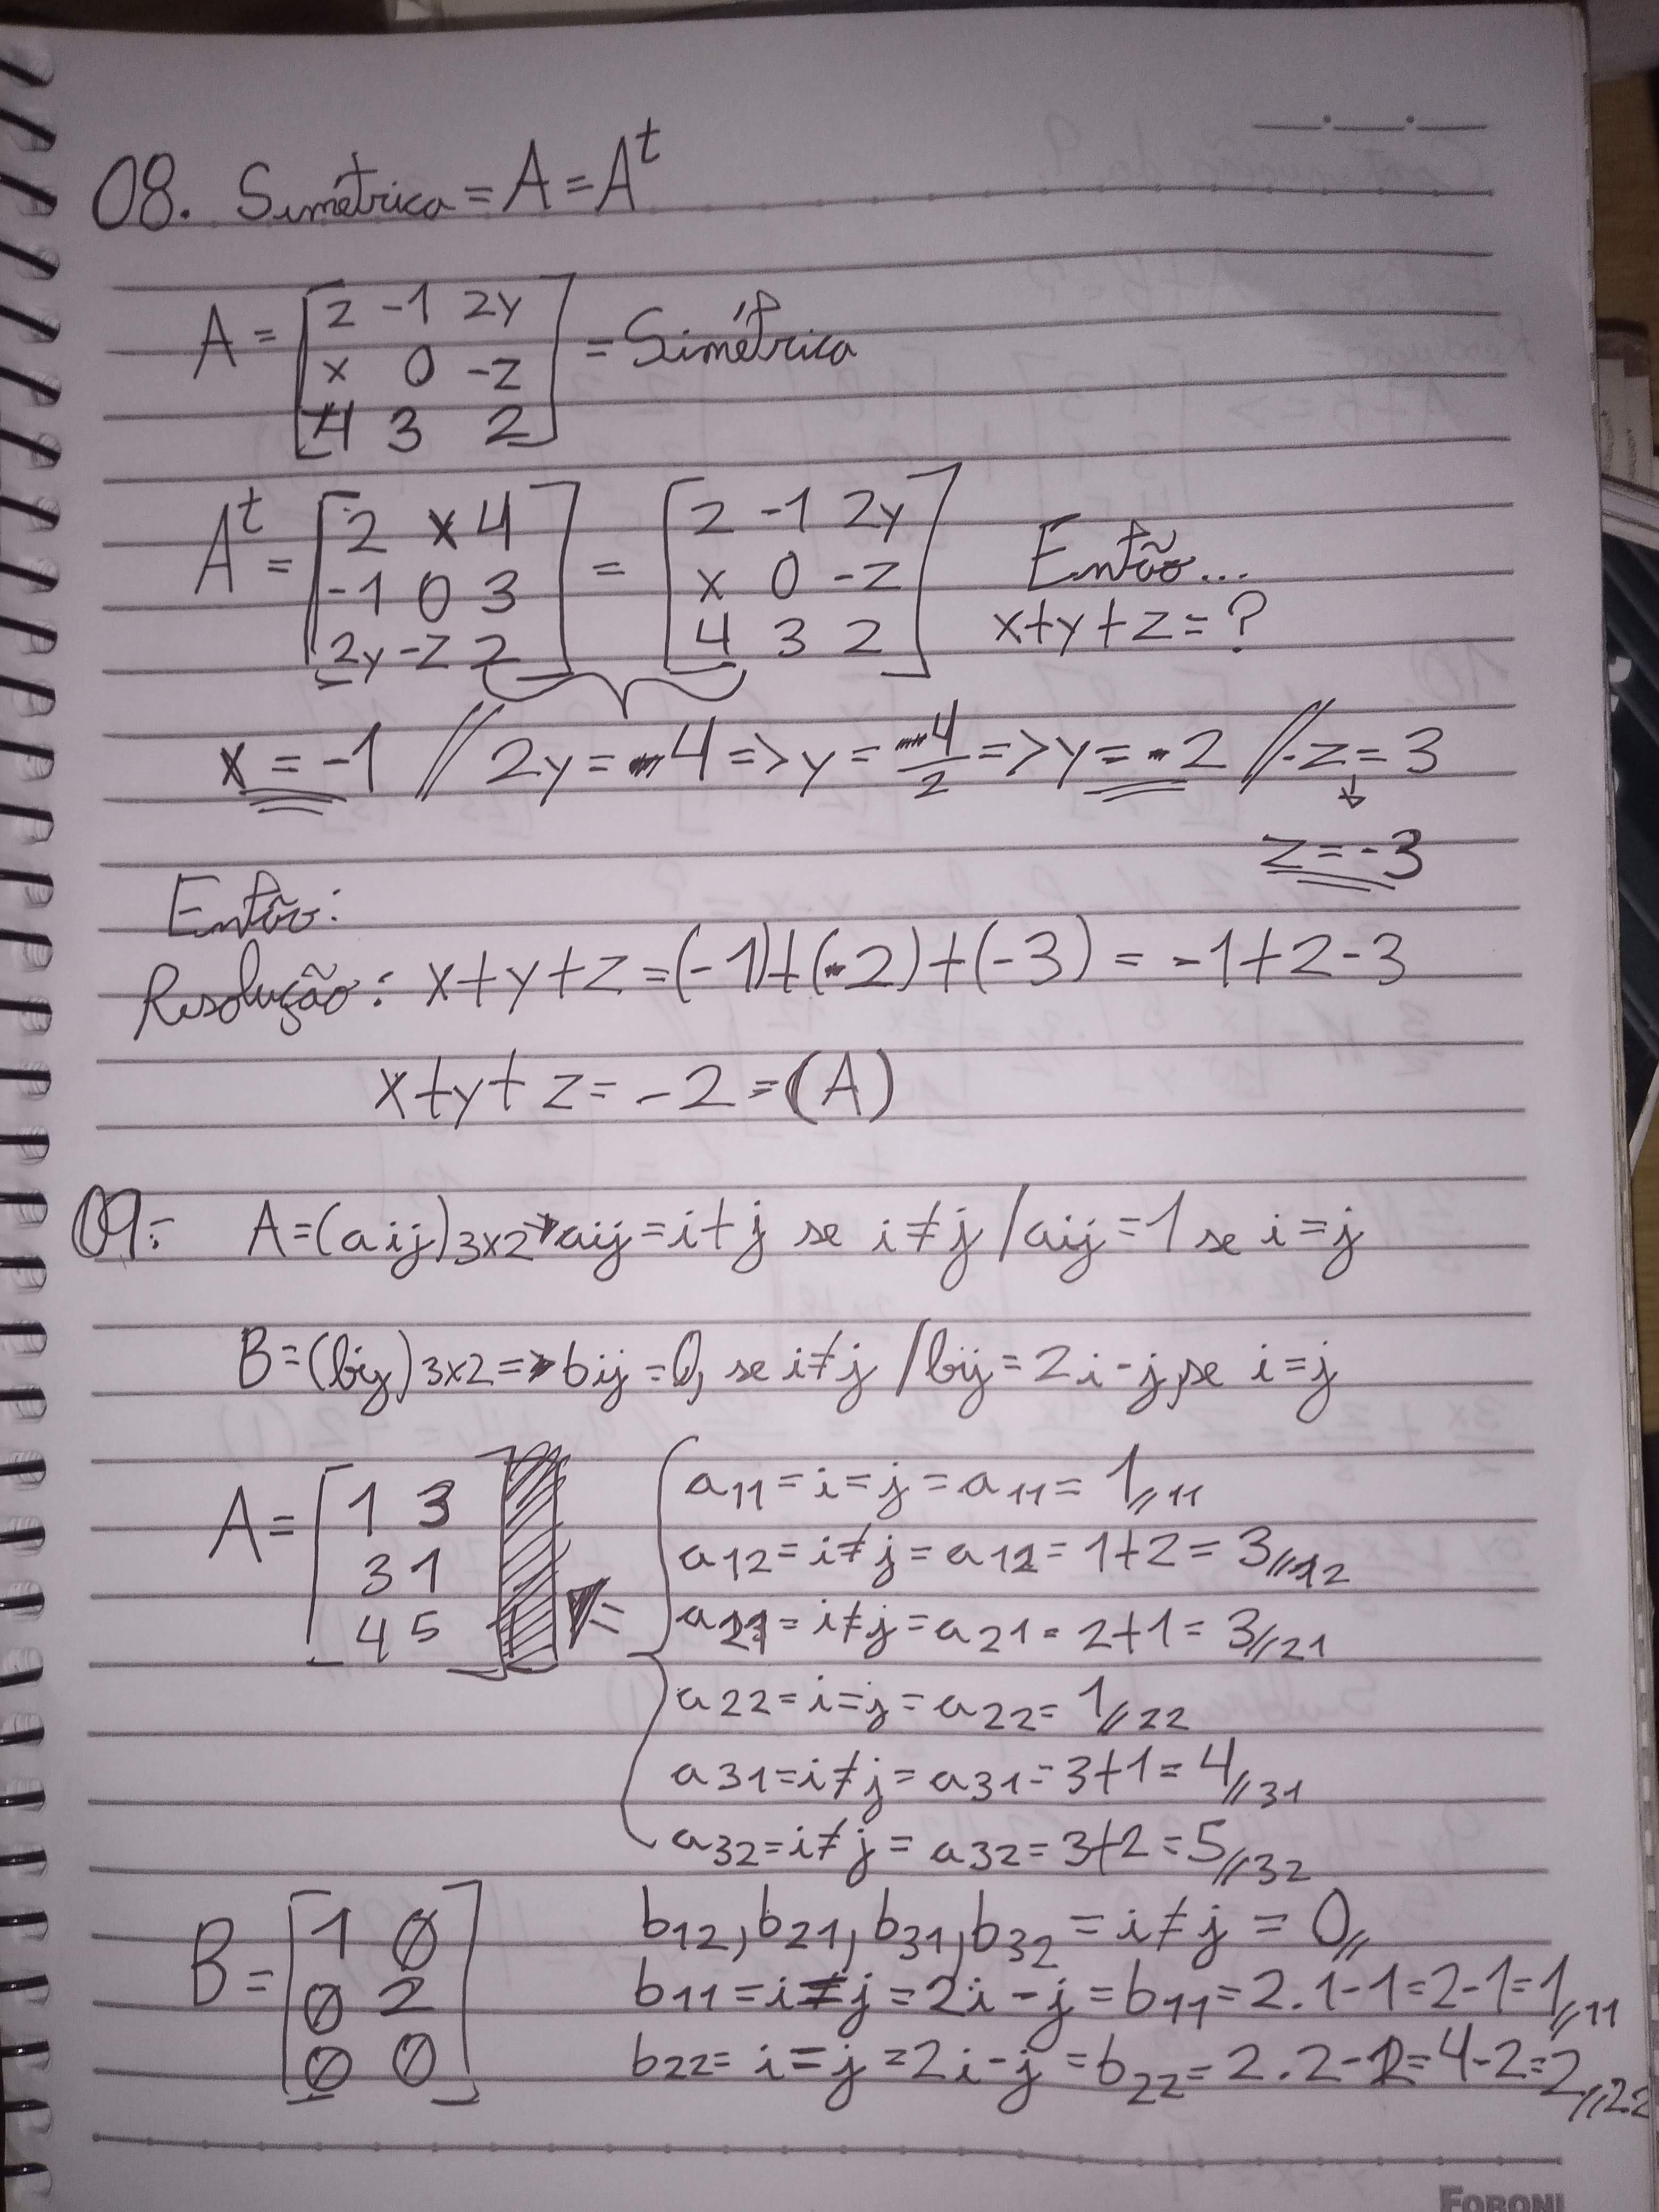 08. Simétrica = A = Aᵗ
A = [2 -1 2y] = Simétrica
x 0 -z
4 3 2
Aᵗ = [2 x 4] = [2 -1 2y] Então...
-1 0 3 x 0 -z x+y+z=?
2y -z 2 4 3 2
x = -1 // 2y = 4 => y = 4/2 => y = 2 // -z = 3
z = -3
Então:
Resolução: x+y+z = (-1)+(2)+(-3) = -1+2-3
x+y+z = -2 = (A)
09: A=(aij)3x2 → aij = i+j se i≠j / aij = 1 se i=j
B=(bij)3x2 => bij = 0, se i≠j / bij = 2i-j, se i=j
A = [1 3]
3 1
4 5
a11 = i=j = a11 = 1//11
a12 = i≠j = a12 = 1+2 = 3//12
a21 = i≠j = a21 = 2+1 = 3//21
a22 = i=j = a22 = 1//22
a31 = i≠j = a31 = 3+1 = 4//31
a32 = i≠j = a32 = 3+2 = 5//32
B = [1 0]
0 2
0 0
b12, b21, b31, b32 = i≠j = 0//
b11 = i=j = 2i-j = b11 = 2.1-1 = 2-1 = 1//11
b22 = i=j = 2i-j = b22 = 2.2-2 = 4-2 = 2//22
FORONI